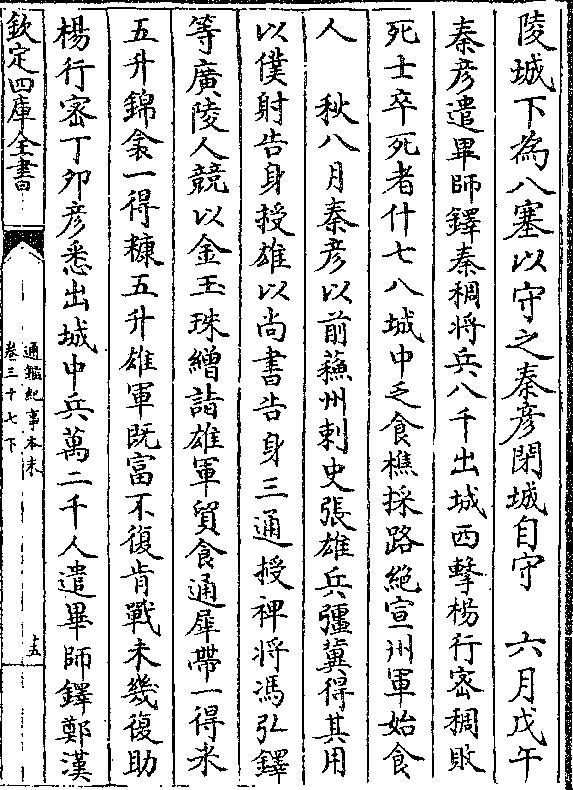 陵城下為八寨以守之秦彦閉城自守　六月戊午
秦彦遣畢師鐸秦稠將兵八千出城西擊楊行宻稠敗
死士卒死者什七八城中乏食樵採路絶宣州軍始食
人　秋八月秦彦以前蘓州刺史張雄兵彊冀得其用
以僕射告身授雄以尚書告身三通授裨將馮弘鐸
等廣陵人競以金玉珠繒詣雄軍貿食通犀帶一得米
五升錦衾一得糠五升雄軍既富不復肯戰未幾復助
楊行宻丁夘彦悉出城中兵萬二千人遣畢師鐸鄭漢
欽定四庫全書
通鑑紀事本末
卷三十七下
十五